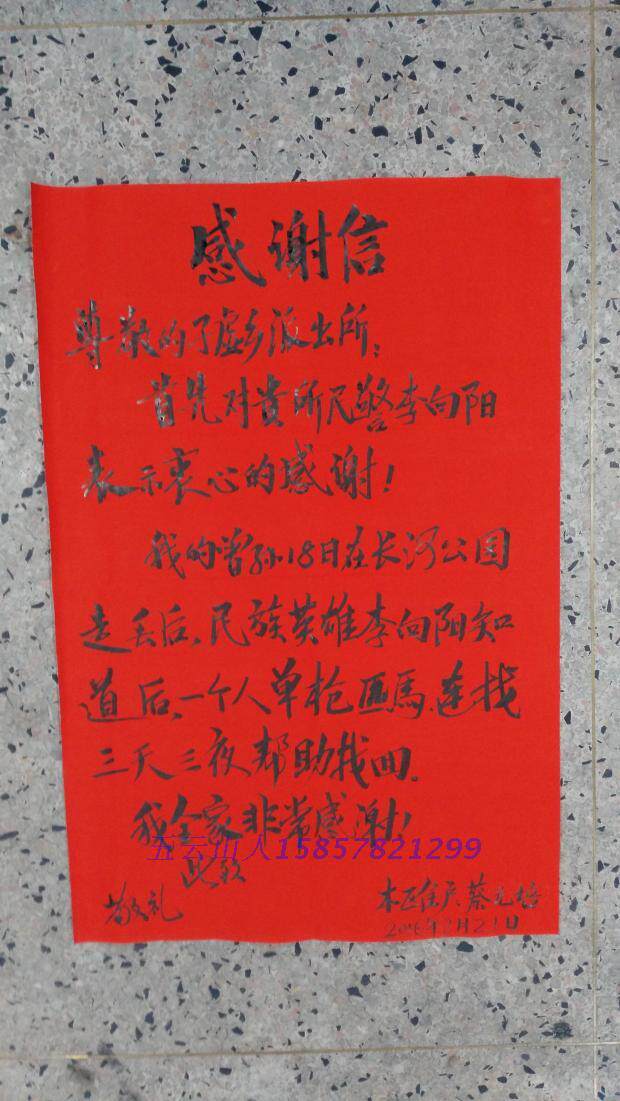 感谢信
尊敬的丁虚乡派出所:
首先对贵所民警李向阳
表示衷心的感谢!
我的曾孙18日在长河公园
走丢后、民族英雄李向阳知
道后、一个人单枪匹馬、连找
三天三夜帮助找回.
我全家非常感谢!
五云山人15857821299
此致
敬礼
蔡元培
月21日